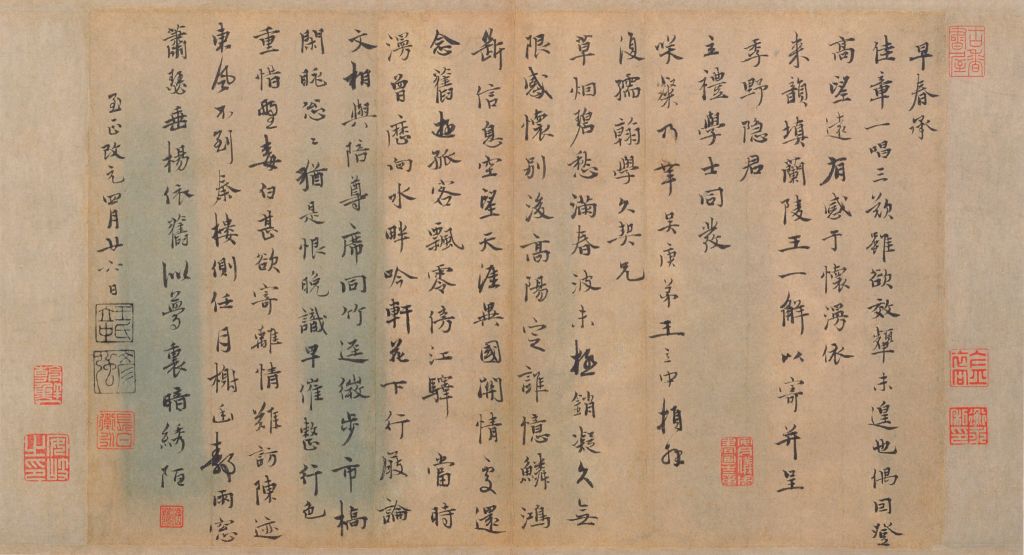 早春承
佳章一唱三歎雖欲效顰未遑也偶因登
高望遠有感于懷漫依
來韻填蘭陵王一解以寄并呈
季野隐君
主禮學士同發
咲粲乃幸吳庚弟王立中頓
復孺翰學久契兄
草烟碧愁滿春波未極銷凝久無
限感懷別後高陽定誰憶鱗鴻
斷信息空望天涯異國關情處還
念舊遊孤客飄零傍江驛當時
漫曾歷向水畔吟軒花下行廚論
文相與陪尊席同竹逕微步市橋
閑眺忩〻猶是恨晚識早催整行色
重惜鬢毒白甚欲寄離情難訪陳迹
東風不到秦樓側任月榭雨窓
蕭瑟垂楊依舊似夢裏暗綉陌
至正改元四月廿六日
王氏立中
彥強